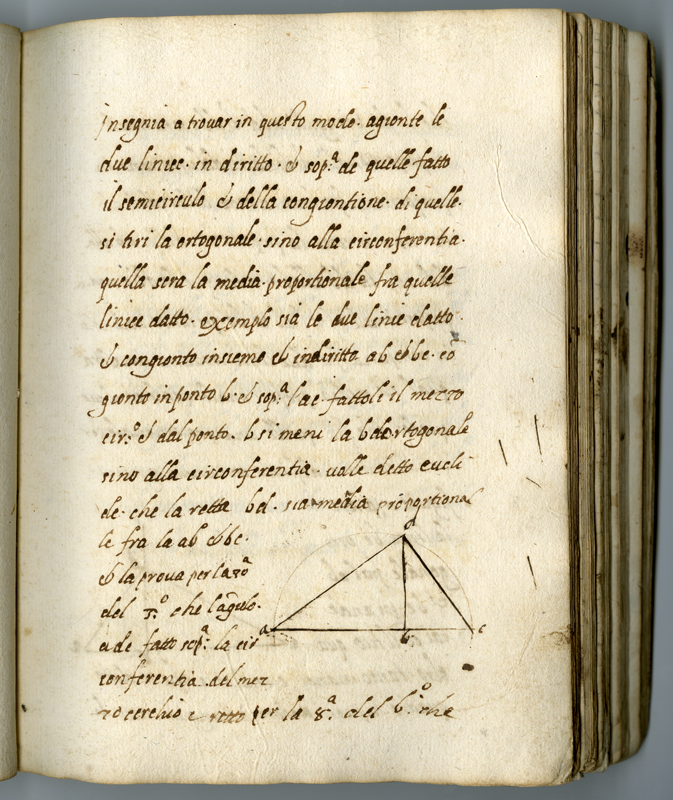 insegnia a trovar in questo modo. agionte le
due linice. in diritto. & sop.ª de quelle fatto
il semicirculo & della congiontione. di quelle.
si tiri la ortogonale. sino alla circonferentia.
quella sera la media. proportionale fra quelle
linice datto. exemplo sia le due linie datto.
& congionto insieme & indiritto. ab & bc. cō
gionto in ponto b. & sop.ª l'ac. fattoli il mezzo
cir.º & dal ponto. b si meni la bd ortogonale
sino alla circonferentia. volle detto eucli
de. che la retta bd. sia media proportiona
le fra la ab & bc.
& la prova per la 30ª
del 3.º che l'āgulo.
adc fatto sop.ª la cir
conferentia. del mez
zo cerchio e retto per la 8ª. del 6.º che
d
a
b
c